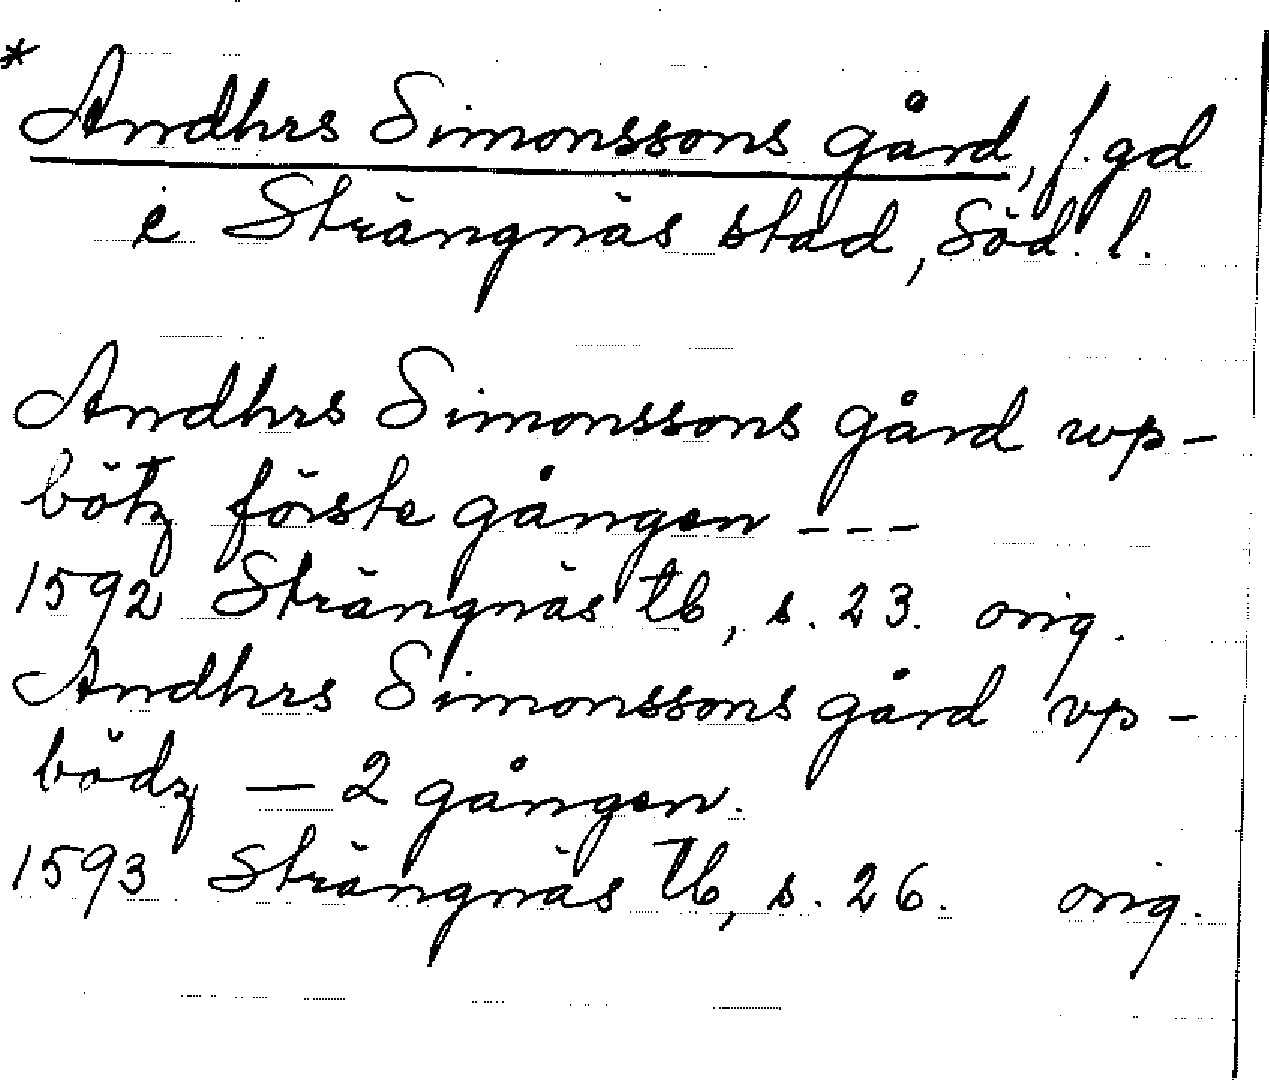 * Andhrs Simonssons gård, f. gd
i Strängnäs stad, Söd. l.
Andhrs Simonssons gård wp-
bötz förste gången ---
1592 Strängnäs tb, s. 23. orig.
Andhrs Simonssons gård vp-
bödz — 2 gången.
1593 Strängnäs tb, s. 26. orig.